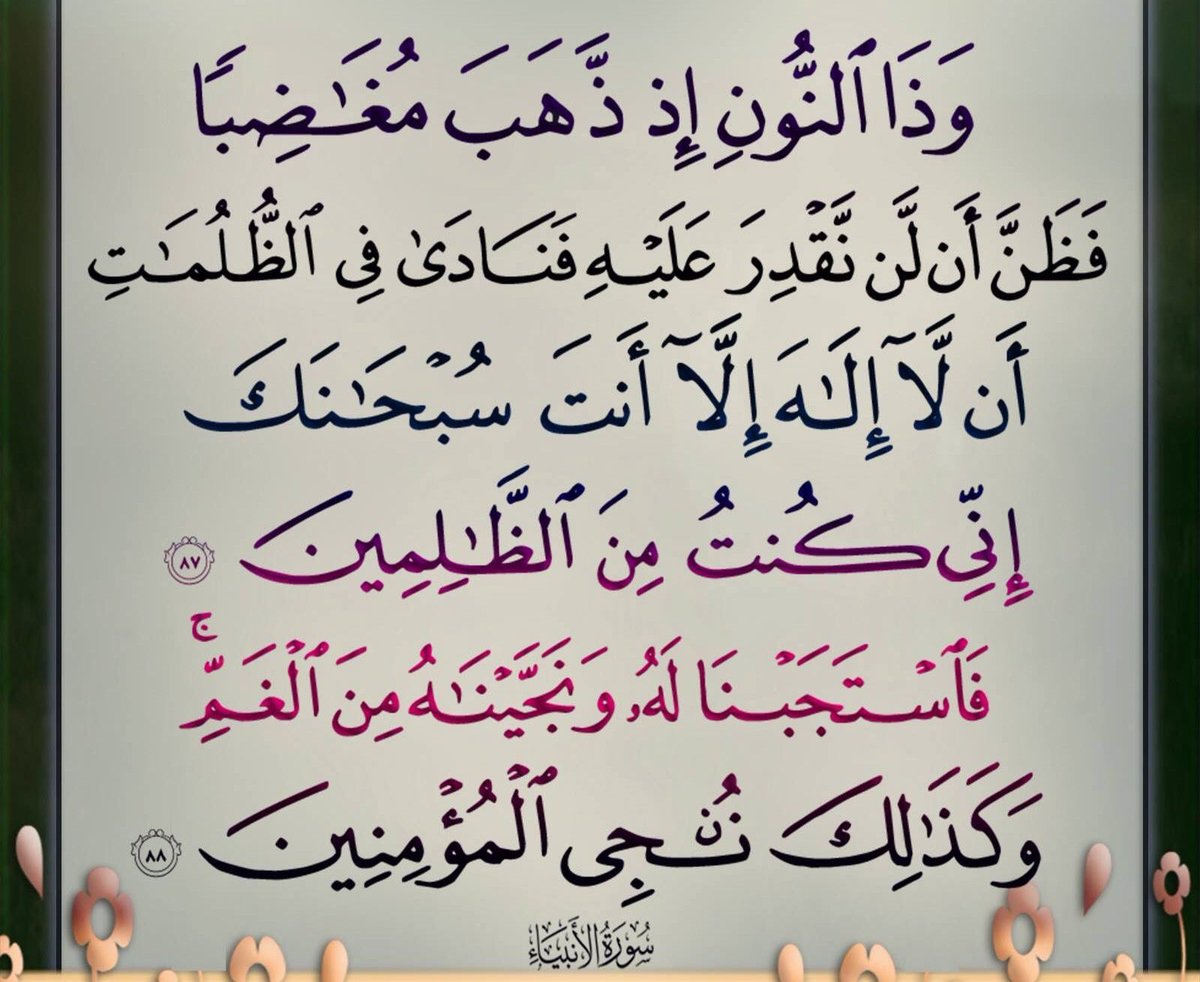 وَذَا ٱلنُّونِ إِذ ذَّهَبَ مُغَـٰضِبًا
فَظَنَّ أَن لَّن نَّقۡدِرَ عَلَيۡهِ فَنَادَىٰ فِى ٱلظُّلُمَـٰتِ
أَن لَّآ إِلَـٰهَ إِلَّآ أَنتَ سُبۡحَـٰنَكَ
إِنِّى كُنتُ مِنَ ٱلظَّـٰلِمِينَ ٨٧
فَٱسۡتَجَبۡنَا لَهُۥ وَنَجَّيۡنَـٰهُ مِنَ ٱلۡغَمِّۚ
وَكَذَٰلِكَ نُـۨجِى ٱلۡمُؤۡمِنِينَ ٨٨
سُورَةُ الأَنبِيَاءِ